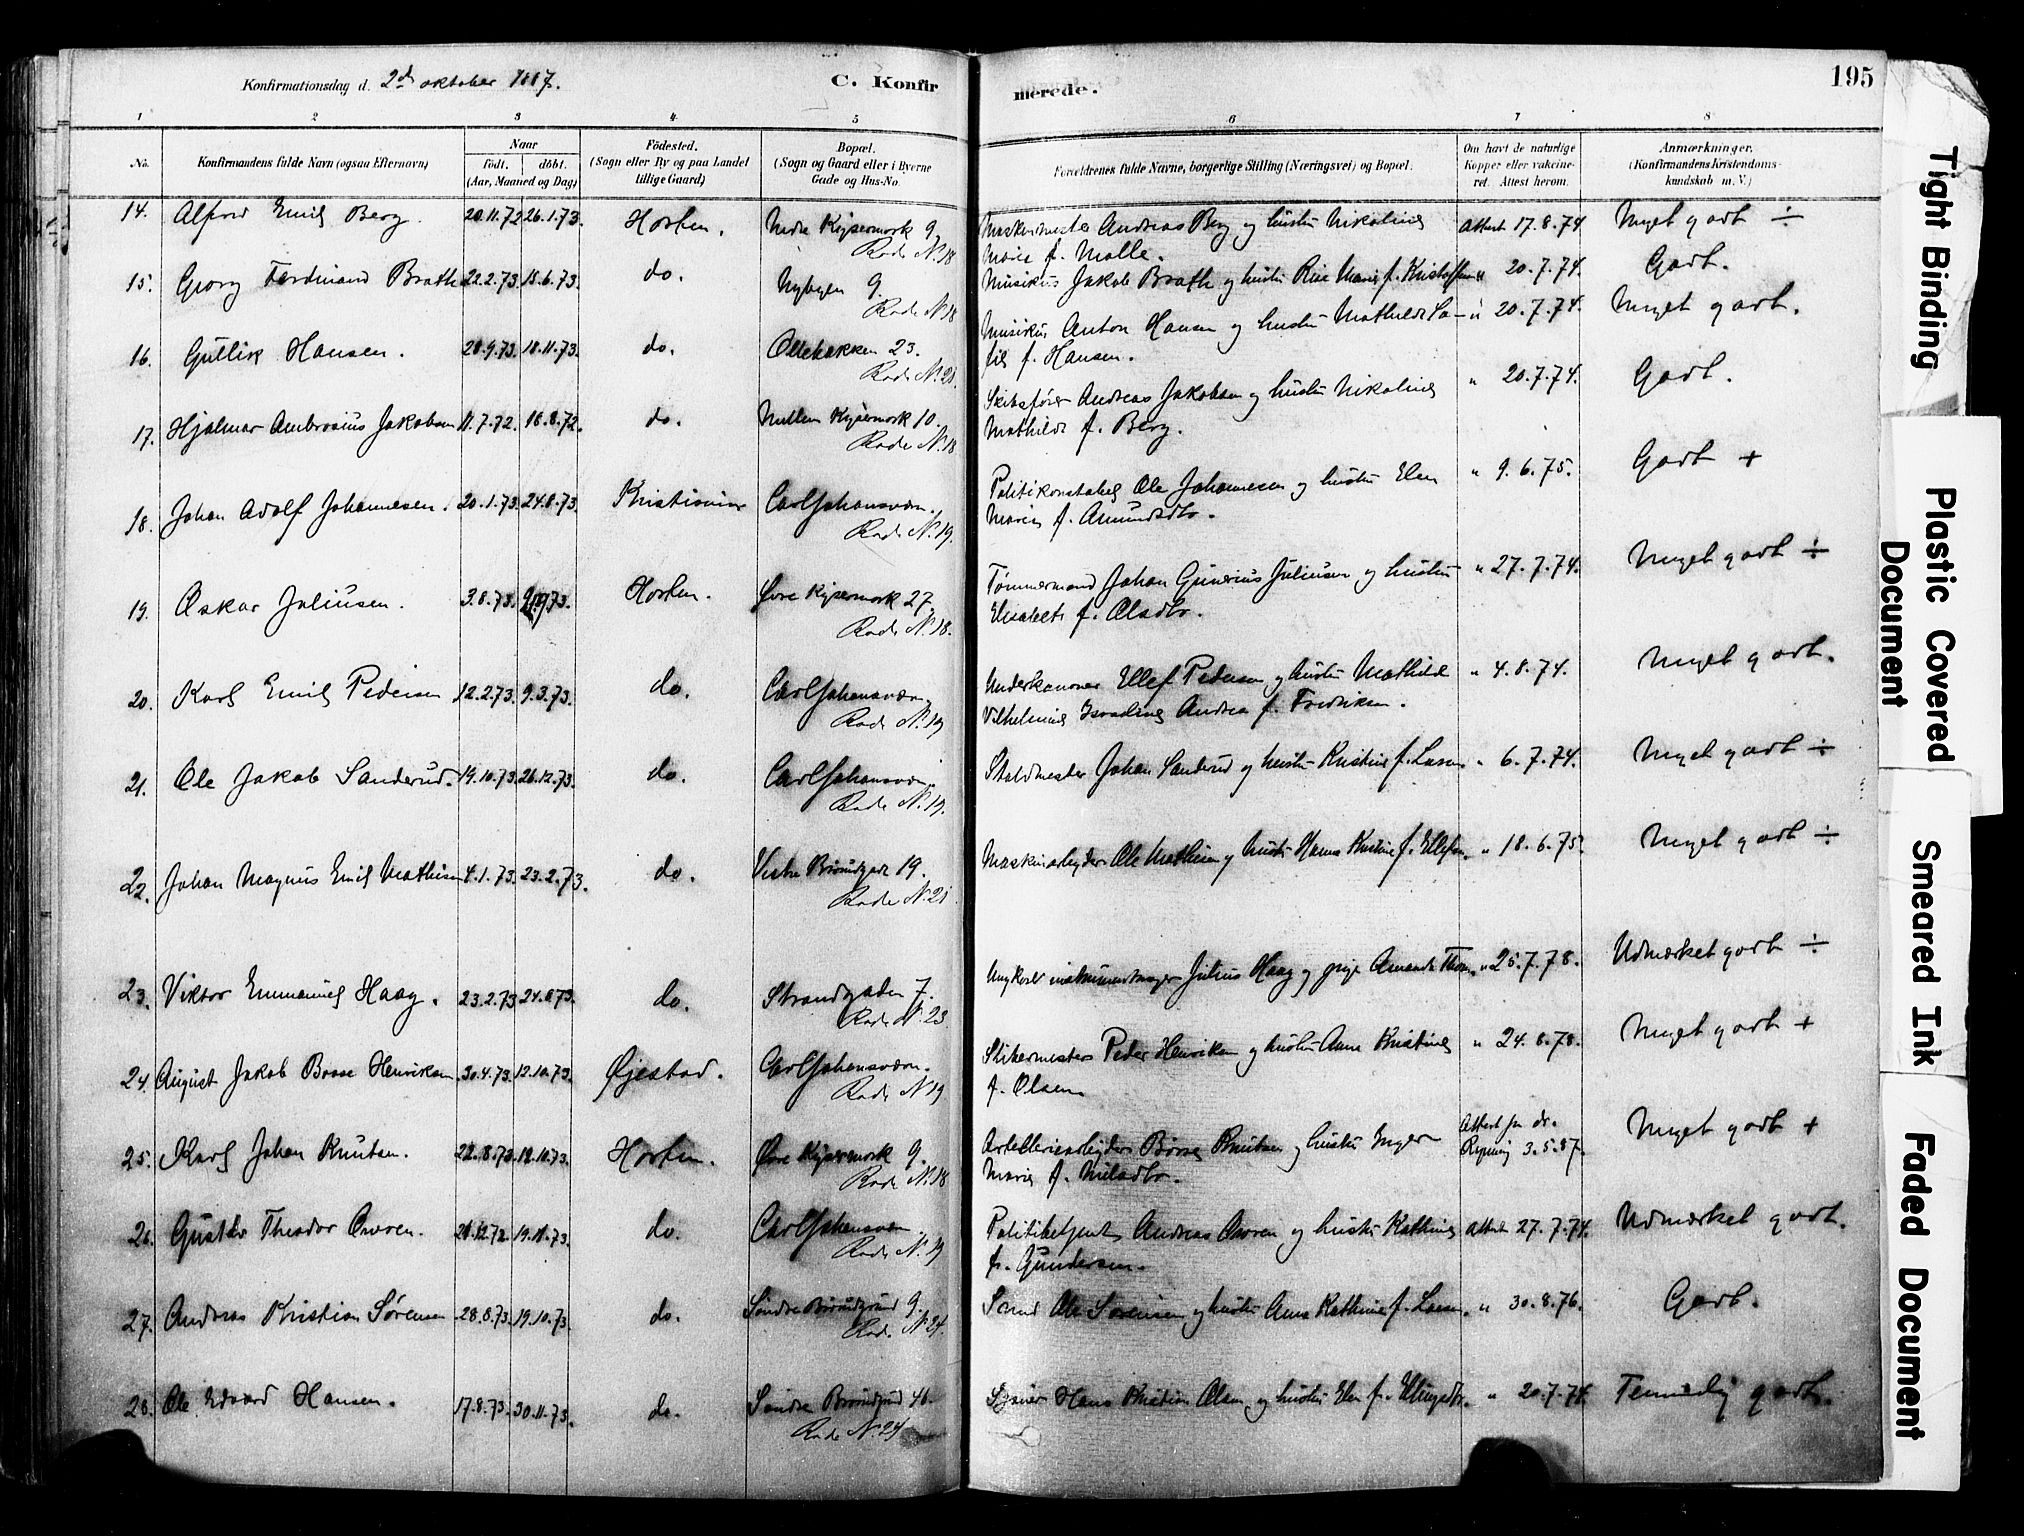 Konfirmationsdag d. 2d oktober 1887.
C. Konfirmerede.
195
1 2 3 4 5 6 7 8
No.
Konfirmandens fulde Navn (ogsaa Efternavn)
Naar
födt. döbt.
(Aar, Maaned og Dag)
Födested.
(Sogn eller By og paa Landet
tillige Gaard)
Bopæl.
(Sogn og Gaard eller i Byerne
Gade og Hus-No.
Forældrenes fulde Navne, borgerlige Stilling (Næringsvei) og Bopæl.
Om havt de naturlige
Kopper eller vakcine-
ret. Attest herom.
Anmærkninger.
(Konfirmandens Kristendoms-
kundskab m. V.)
14. Alfred Emil Berg. 20.11.72 26.1.73. Horten. Nedre Keisermark 9.
Rode N. 18
Andreas Berg og hustru Nikoline
Marie f. Malle.
Attest 17.8.74 Meget godt ÷
15. Georg Ferdinand Brath 22.2.73. 15.6.73. do. Nybyen 9.
Rode N. 18
Musikus Jakob Brath og hustru Marie f. Kristoffersen " 20.7.74. Godt.
16. Gullik Hansen. 28.9.73. 18.11.73. do. Ollebakken 23.
Rode N. 21.
Musikus Anton Hansen og hustru Mathilde So-
fie f. Hansen.
" 20.7.74. Meget godt.
17. Hjalmar Ambrosius Jakobsen 11.7.72. 18.8.72. do. Mellem Keisermark 10.
Rode N. 18
Skibsfører Andreas Jakobsen og hustru Nikoline
Mathilde f. Berg.
" 20.7.74. Godt.
18. Johan Adolf Johannesen. 20.1.73. 24.8.73. Kristiania Carljohansværn.
Rode N. 19.
Politikonstabel Ole Johannesen og hustru Elen
Marie f. Amundsdtr.
" 9.6.75. Godt +
19. Oskar Juliusen. 3.8.73. Horten. Øvre Keisermark 27
Rode N. 18.
Tømmermand Johan Gunerius Juliusen og hustru
Elisabeth f. Olsdtr.
" 27.7.74. Meget godt ÷
20. Karl Emil Pedersen 12.2.73. 9.3.73. do. Carljohansværn
Rode N. 19
Underkanoner Ellef Pedersen og hustru Mathilde
Vilhelmine Andrea f. Fredriksen.
" 4.8.74. Meget godt.
21. Ole Jakob Sanderud. 19.10.73. 26.12.73. do. Carljohansværn
Rode N. 19.
Staldmester Johan Sanderud og hustru Kristine f. Larsen " 6.7.74. Meget godt ÷
22. Johan Magnus Emil Mathisen 4.1.73. 23.2.73. do. Vestre Braarudgade 19.
Rode N. 21
Maskinarbeider Ole Mathisen og hustru Hanna Kristine f. Ellefsen. " 18.6.75 Meget godt ÷
23. Viktor Emmanuel Haag. 23.2.73 24.8.73. do. Strandgaden 7.
Rode N. 23
Julius Haag og pige Amanda " 25.7.78. Udmærket godt ÷
24. August Jakob Boose Henriksen. 30.4.73. 12.10.73. Øjestad. Carljohansværn.
Rode N. 19
Peder Henriksen og hustru Anne Kristine
f. Olsen.
" 24.8.78. Meget godt +
25. Karl Johan Knutsen. 22.8.73. 12.10.73. Horten. Øvre Keisermark 9.
Rode N. 18
Artilleriearbeider Knutsen og hustru Inger
Marie f. Nilsdtr.
Attest fra dr.
3.5.87.
Meget godt +
26. Gustav Theodor Owren. 26.12.72. 19.11.73. do. Carljohansværn
Rode N. 19
Politibetjent Andreas Owren og hustru Kathrine
f. Gundersen.
Attest 27.7.74. Udmærket godt.
27. Andreas Kristian Sörensen 28.8.73. 19.10.73. do. Söndre Braarudgade 9.
Rode N. 24.
Smed Ole Sörensen og hustru Anne Kathrine f. Larsen. " 30.8.76. Godt.
28. Ole Edvard Hansen. 17.8.73. 30.11.73. do. Söndre Braarudgade 46.
Rode N. 24
Hans Kristian Olsen og hustru Elen f. " 20.7.74 Temmelig godt.
Tight Binding
Plastic Covered
Document
Smeared Ink
Faded Document